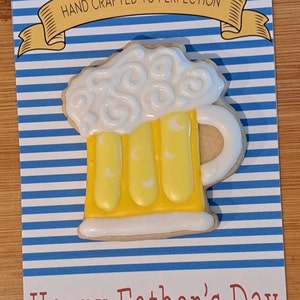 HAND CRAFTED TO PERFECTION
Happy Father's Day